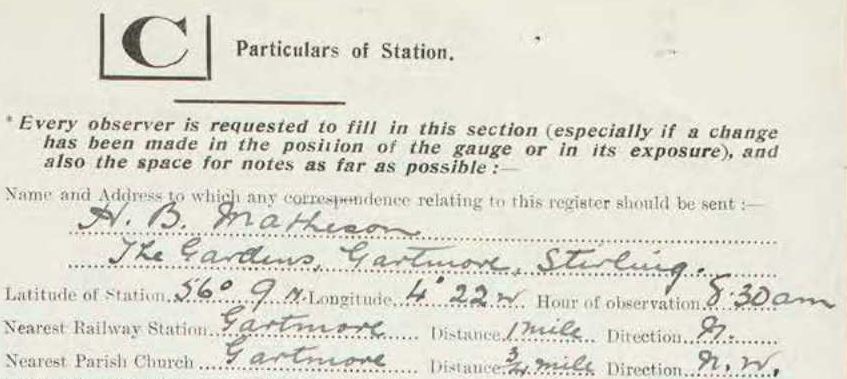 C Particulars of Station.
* Every observer is requested to fill in this section (especially if a change
has been made in the position of the gauge or in its exposure), and
also the space for notes as far as possible :—
Name and Address to which any correspondence relating to this register should be sent :—
H. B. Matheson
The Gardens, Gartmore, Stirling.
Latitude of Station 56° 9 N. Longitude 4° 22 W. Hour of observation 8.30 am
Nearest Railway Station Gartmore Distance 1 mile Direction N.
Nearest Parish Church Gartmore Distance 3/4 mile Direction N. W.